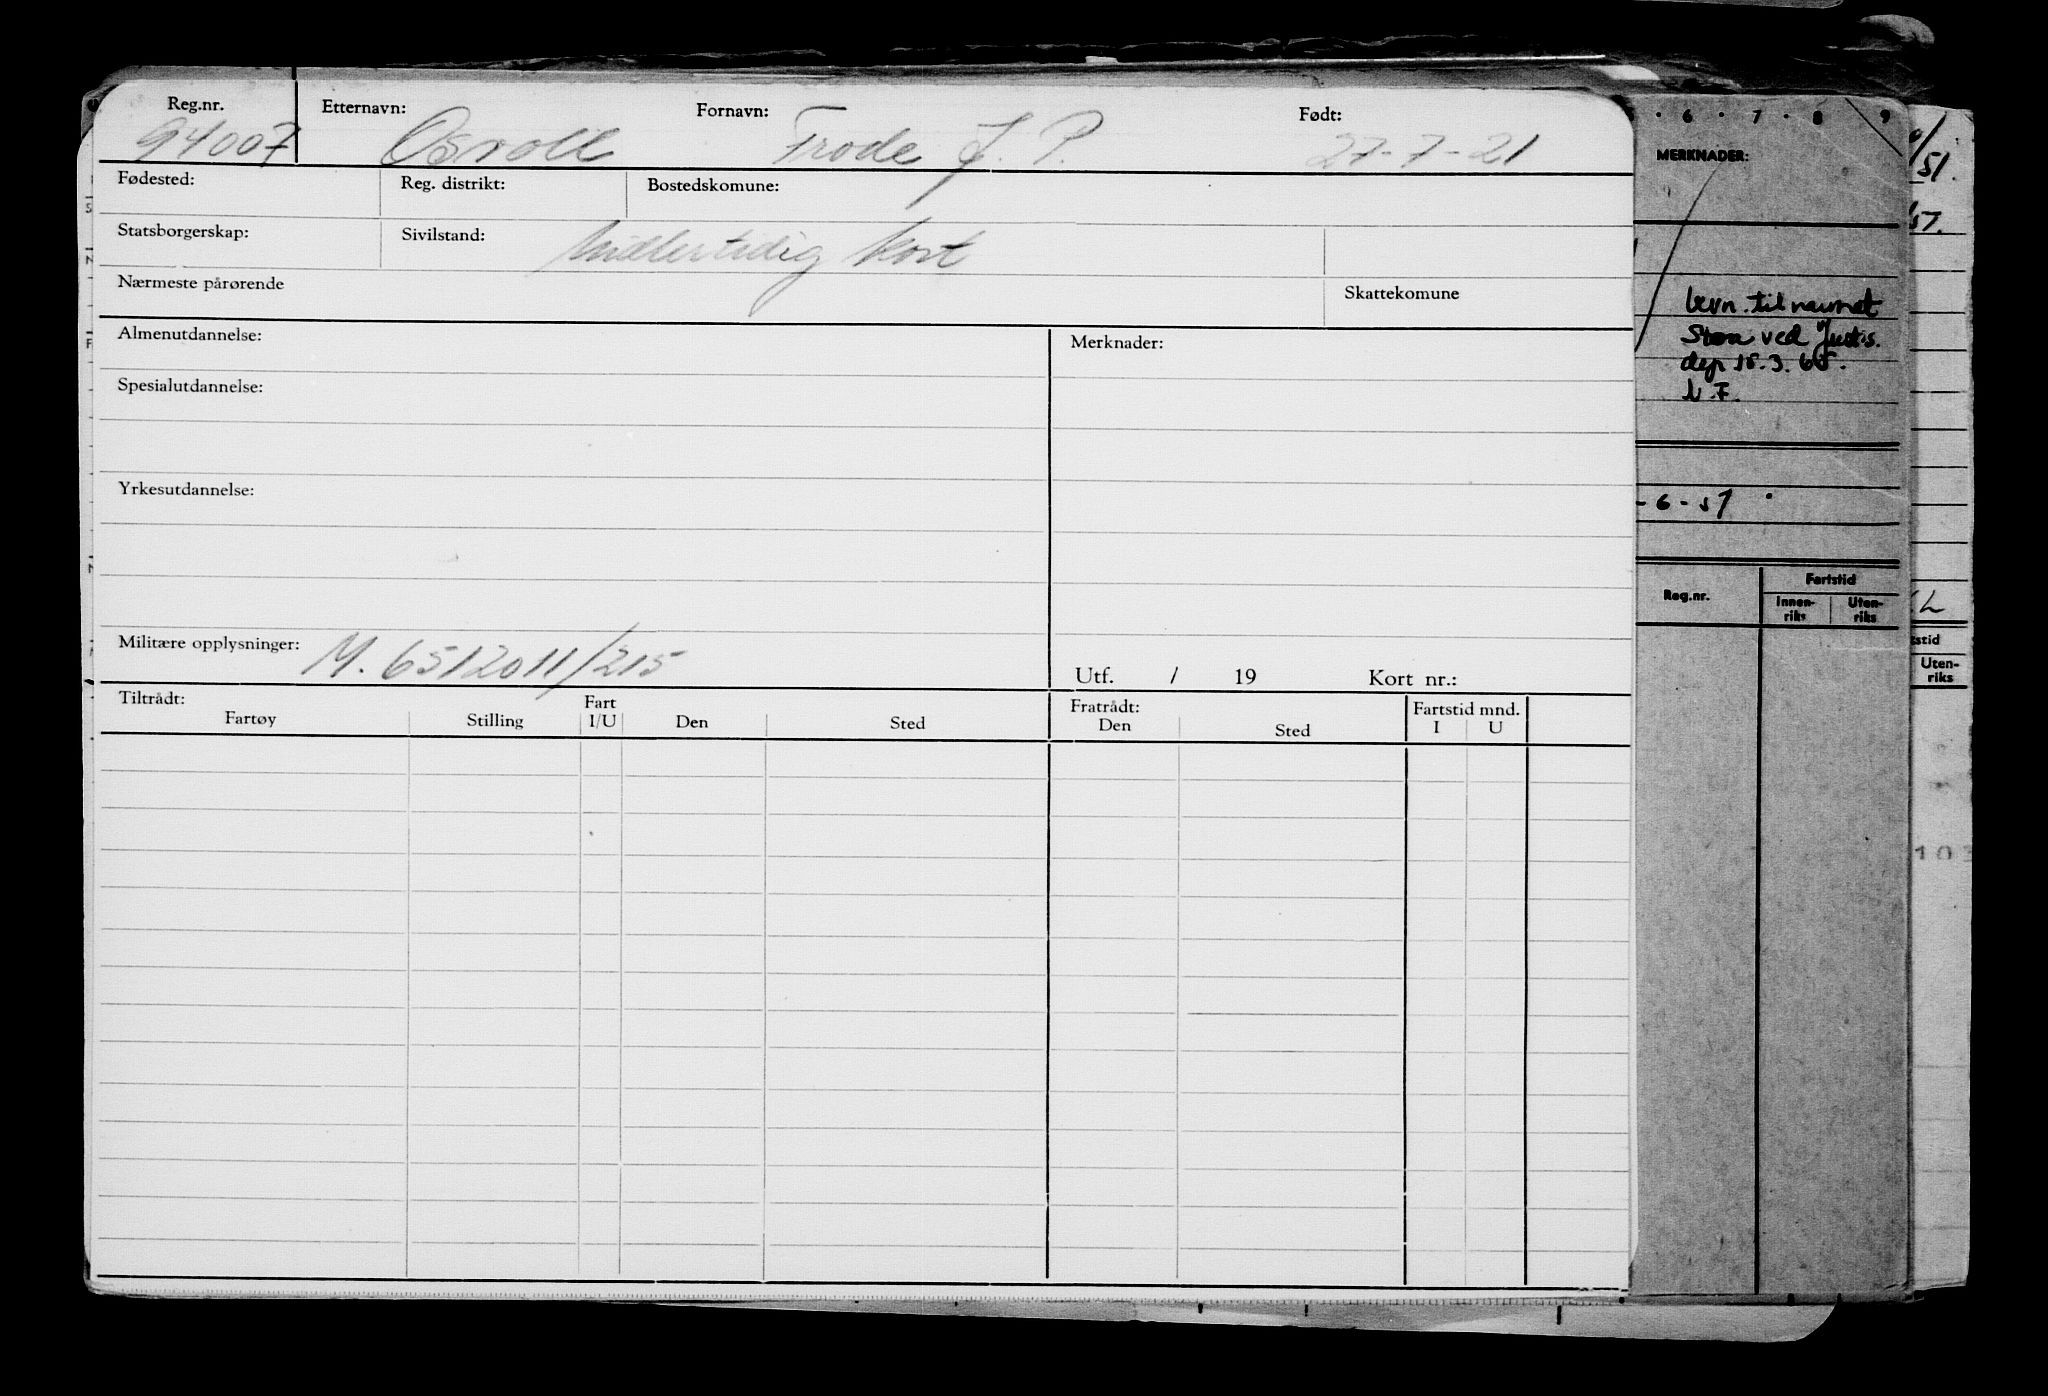 Reg.nr. Etternavn: Fornavn: Født:
94007 Osvoll Frode J. P. 27-7-21
Fødested: Reg. distrikt: Bostedskomune:
Statsborgerskap: Sivilstand: Midlertidig kort
Nærmeste pårørende Skattekomune
Almenutdannelse: Merknader:
Spesialutdannelse:
Yrkesutdannelse:
Militære opplysninger: M. 6512011/215
Utf. / 19 Kort nr.:
Tiltrådt: Fart Fratrådt: Fartstid mnd.
Fartøy Stilling I/U Den Sted Den Sted I U
· 6 · 7 · 8 9
MERKNADER:
til navnet
ved Justis.
dep 15.3.65.
-6-51
Reg.nr. Fartstid
Innen-riks Uten-riks
51.
51.
stid
Uten-
riks
10